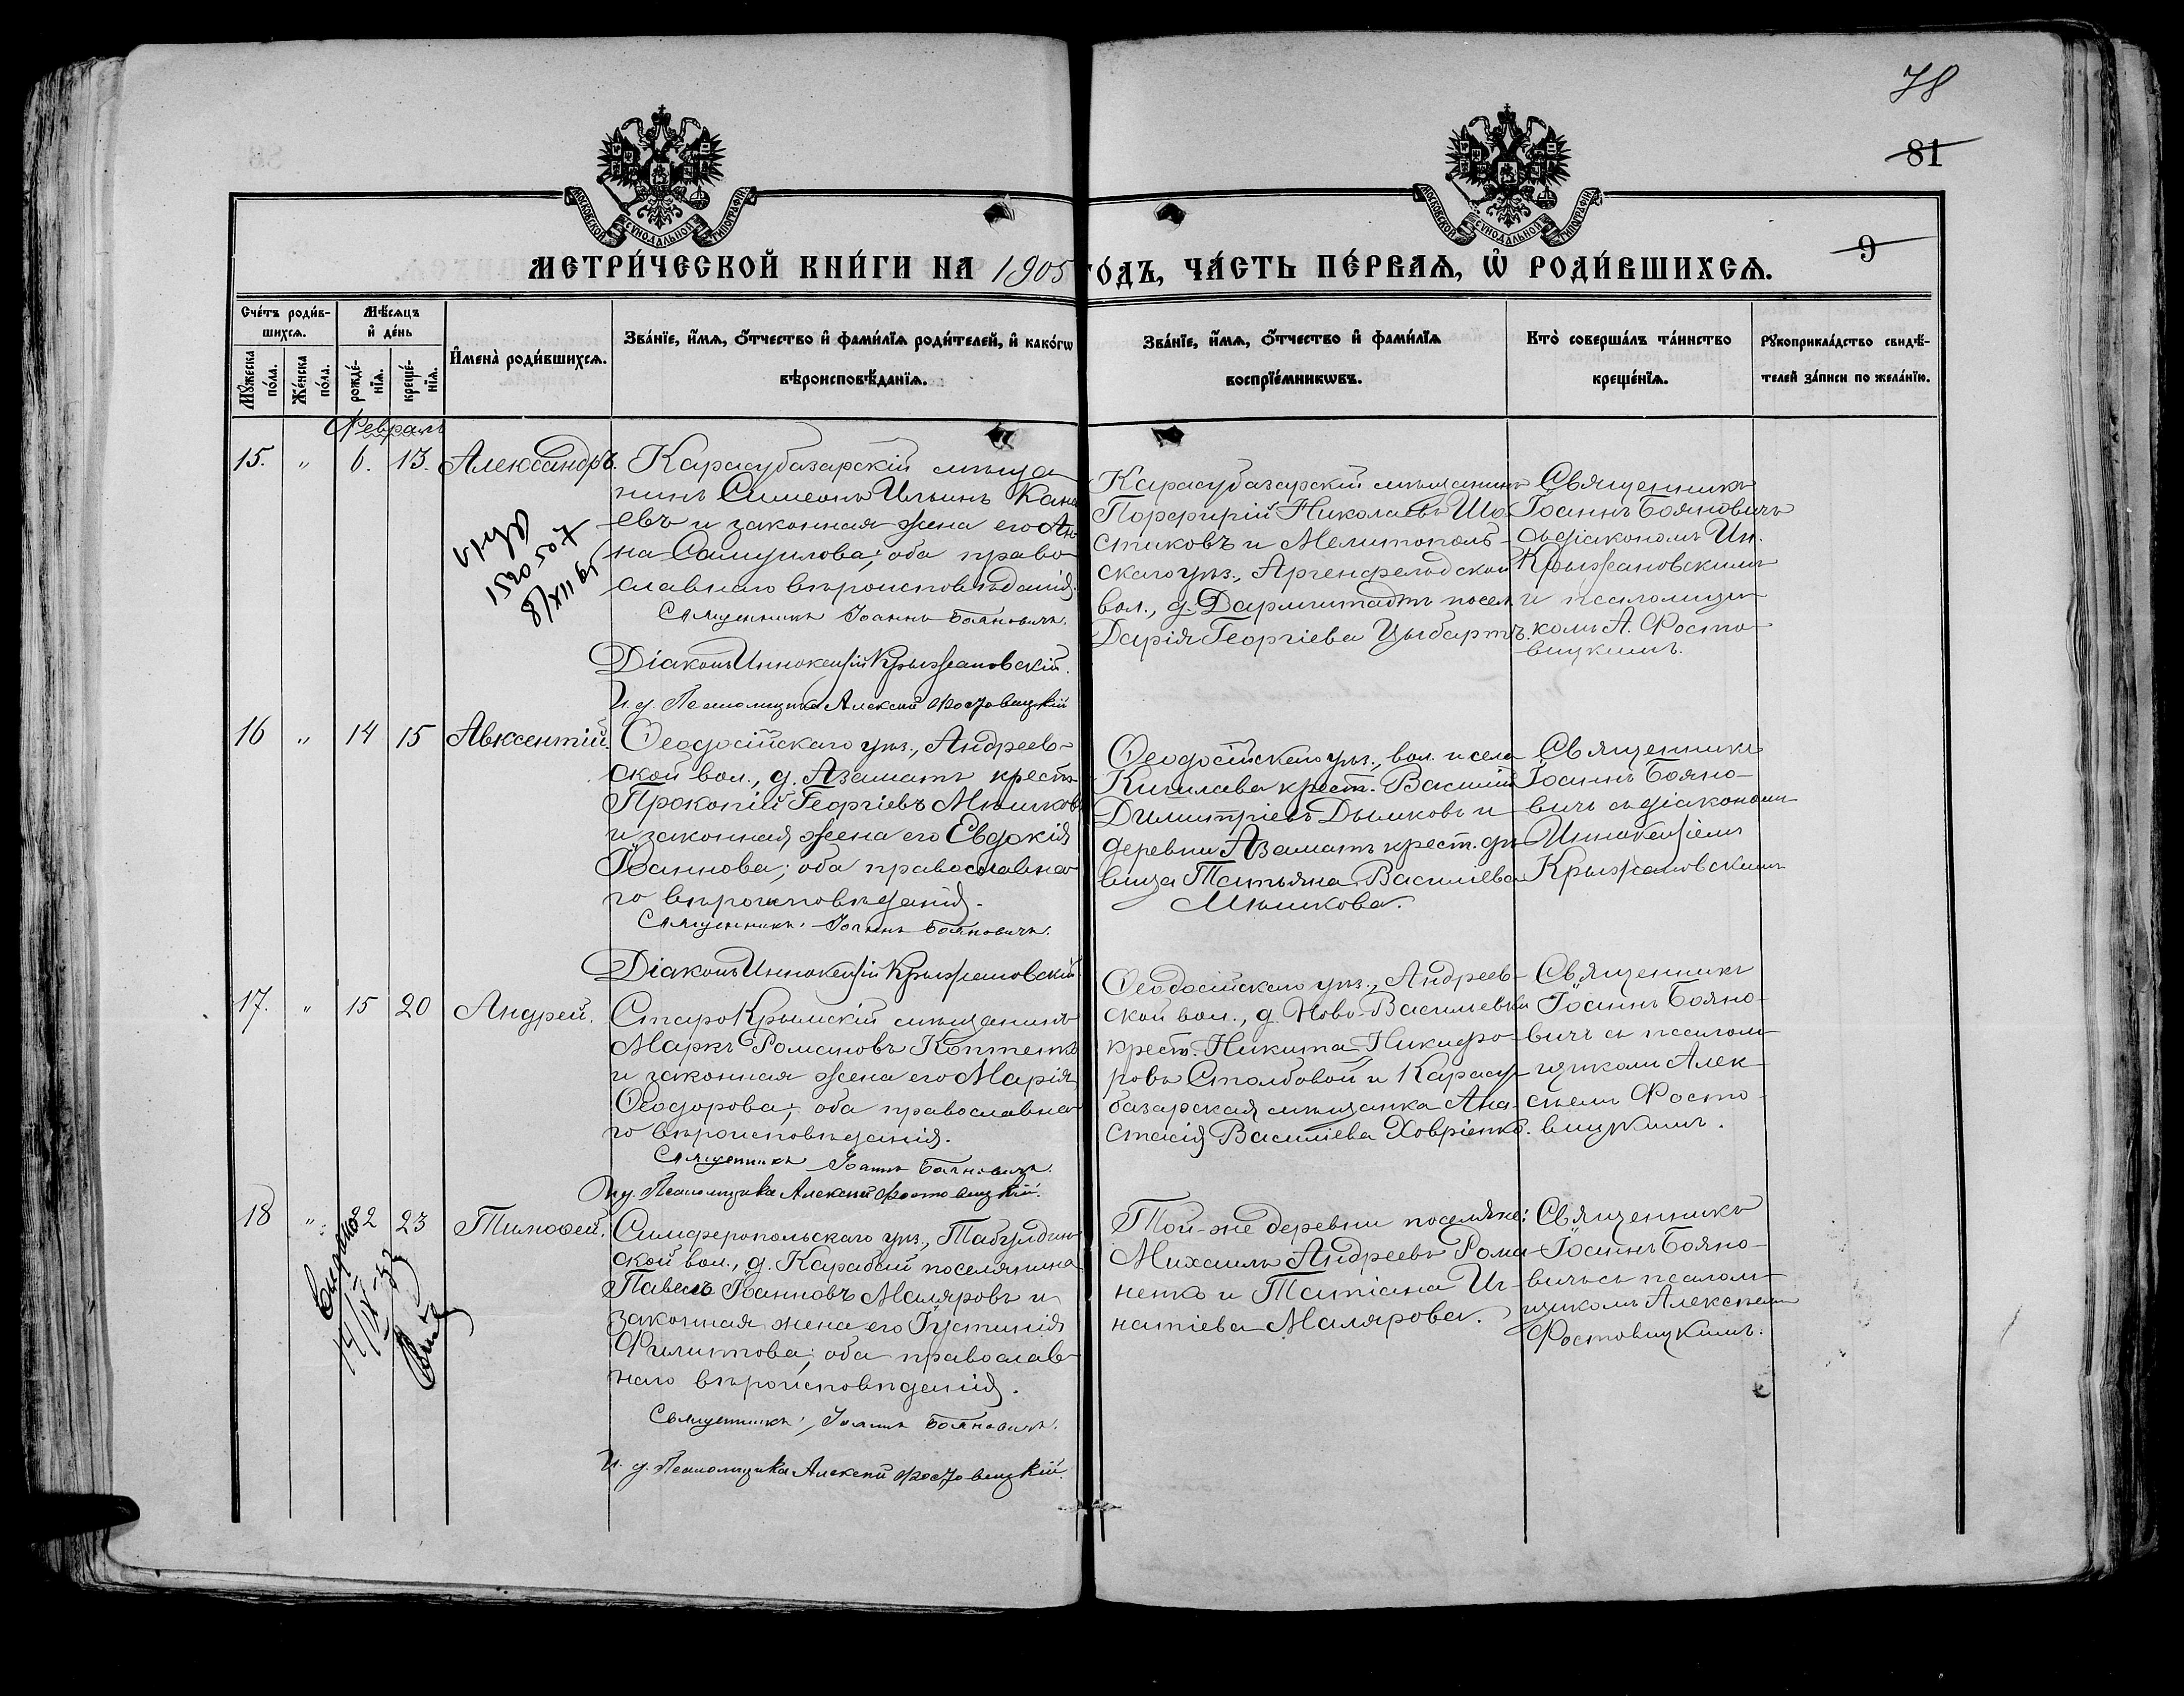 78
81
9
МОСКОВСКОЙ СѴНОДАЛЬНОЙ ТИПОГРАФІИ
МОСКОВСКОЙ СѴНОДАЛЬНОЙ ТИПОГРАФІИ
МЕТРИ́ЧЕСКОЙ КНИ́ГИ НА 1905 ГО́ДЪ, ЧА́СТЬ ПЕ́РВАѦ, Ѡ҆ РОДИ́ВШИХСѦ.
Сче́тъ роди́в-
шихсѧ.
Мꙋ́жеска по́ла.
Же́нска по́ла.
Мѣ́сѧцъ
и҆ де́нь
рожде́-нїѧ.
креще́-нїѧ.
И҆мена̀ роди́вшихсѧ.
Зва́нїе, и҆́мѧ, ѻ҆́тчество и҆ фами́лїѧ роди́телей, и҆ како́гѡ
вѣроисповѣ́данїѧ.
Зва́нїе, и҆́мѧ, ѻ҆́тчество и҆ фами́лїѧ
воспрїе́мникѡвъ.
Кто̀ соверша́лъ та́инство
креще́нїѧ.
Рꙋкоприкла́дство свидѣ́-
телей за́писи по жела́нїю.
Февраль
15. " 6. 13. Александръ.
Карасубазарскій мѣща
нинъ Симеонъ Ильинъ Кана
евъ и законная жена его Ан
на Самуилова; оба право
славнаго вѣроисповѣданія.
Священникъ Іоаннъ Бояновичъ.
Діаконъ Иннокентій Крыжановскій.
И. д. Псаломщика Алексій Фостовицкій
1520507
8/XII 95
Карасубазарскій мѣщанинъ
Порфирій Николаевъ Шо
стиковъ и Мелитополь-
скаго уѣз., Аргенфельдской
вол., д. Дармштадтъ посел
Дарія Георгіева Цыбартъ.
Священникъ
Іоаннъ Бояновичъ
съ діакономъ Ин.
Крыжановскимъ
и псаломщи-
комъ А. Фосто-
вицкимъ.
16 " 14 15 Авксентій.
Ѳеодосійскаго уѣз., Андреев-
ской вол., д. Азаматъ крест.
Прокопій Георгіевъ Мѣшков
и законная жена его Евдокія
Іоаннова; оба православна
го вѣроисповѣданія.
Священникъ Іоаннъ Бояновичъ.
Діаконъ Иннокентій Крыжановскій.
Ѳеодосійскаго уѣз., вол. и села
крест. Василій
Димитріевъ Дымковъ и
деревни Азаматъ крест. дѣ
вица Татьяна Васильева
Мѣшкова.
Священникъ
Іоаннъ Бояно-
вичъ съ діакономъ
Иннокентіемъ
Крыжановскимъ
17. " 15 20 Андрей.
СтароКрымскій мѣщанинъ
Маркъ Романовъ Коптенко
и законная жена его Марія
Ѳеодорова; оба православна
го вѣроисповѣданія.
Священникъ Іоаннъ Бояновичъ.
И. д. Псаломщика Алексій Фостовицкій.
Ѳеодосійскаго уѣз., Андреев-
ской вол., д. Ново-Васильевки
крест. Никита Никифо-
ровъ Столбовой и Карасу-
базарская мѣщанка Ана-
стасія Васильева Ховріенко.
Священникъ
Іоаннъ Бояно-
вичъ съ псалом-
щикомъ Алек-
сѣемъ Фосто-
вицкимъ.
18 " 22 23 Тимоѳей.
Симферопольскаго уѣз., Табулдин
ской вол., д. Карабай поселянина
Павелъ Іоанновъ Маляровъ и
законная жена его Іустинія
Филиппова; оба православ-
наго вѣроисповѣданія.
Священникъ Іоаннъ Бояновичъ.
И. д. Псаломщика Алексій Фостовицкій.
Той-же деревни поселяне:
Михаилъ Андреевъ Рома-
ненко и Татіана Иг-
натіева Малярова.
Священникъ
Іоаннъ Бояно-
вичъ съ псалом-
щикомъ Алексѣемъ
Фостовицкимъ.